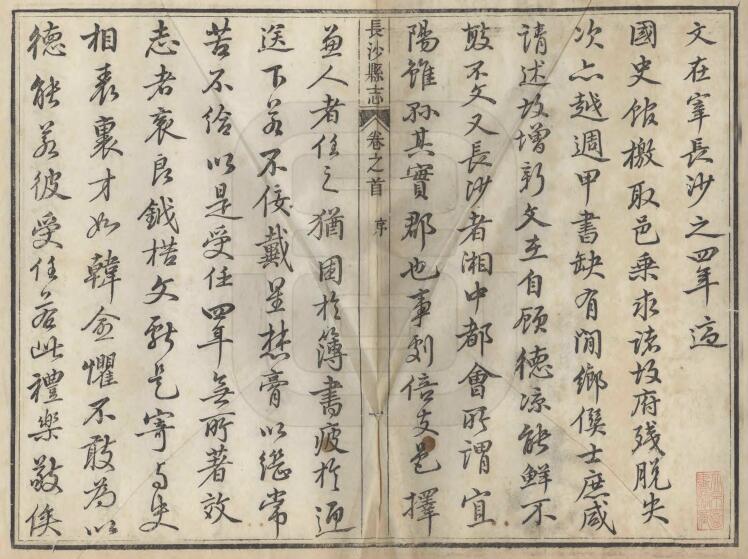 文在宰長沙之四年適
國史館檄取邑乘求諸故府殘脫失
次亦越週甲書缺有間鄉僎士庶咸
請述故增新文在自顧德涼能鮮不
敢不文又長沙者湘中都會所謂宜
陽雖孫其實郡也事劇倍支邑擇
長沙縣志 卷之首 序 一
兼人者任之猶困於簿書疲於迎
送下若不佞戴星焚膏以繼常
苦不給以是受任四年無所著效
志者哀良鉞楛文獻是寄與史
相表裏才如韓愈懼不敢為以
德能若彼受任若此禮樂敬俟